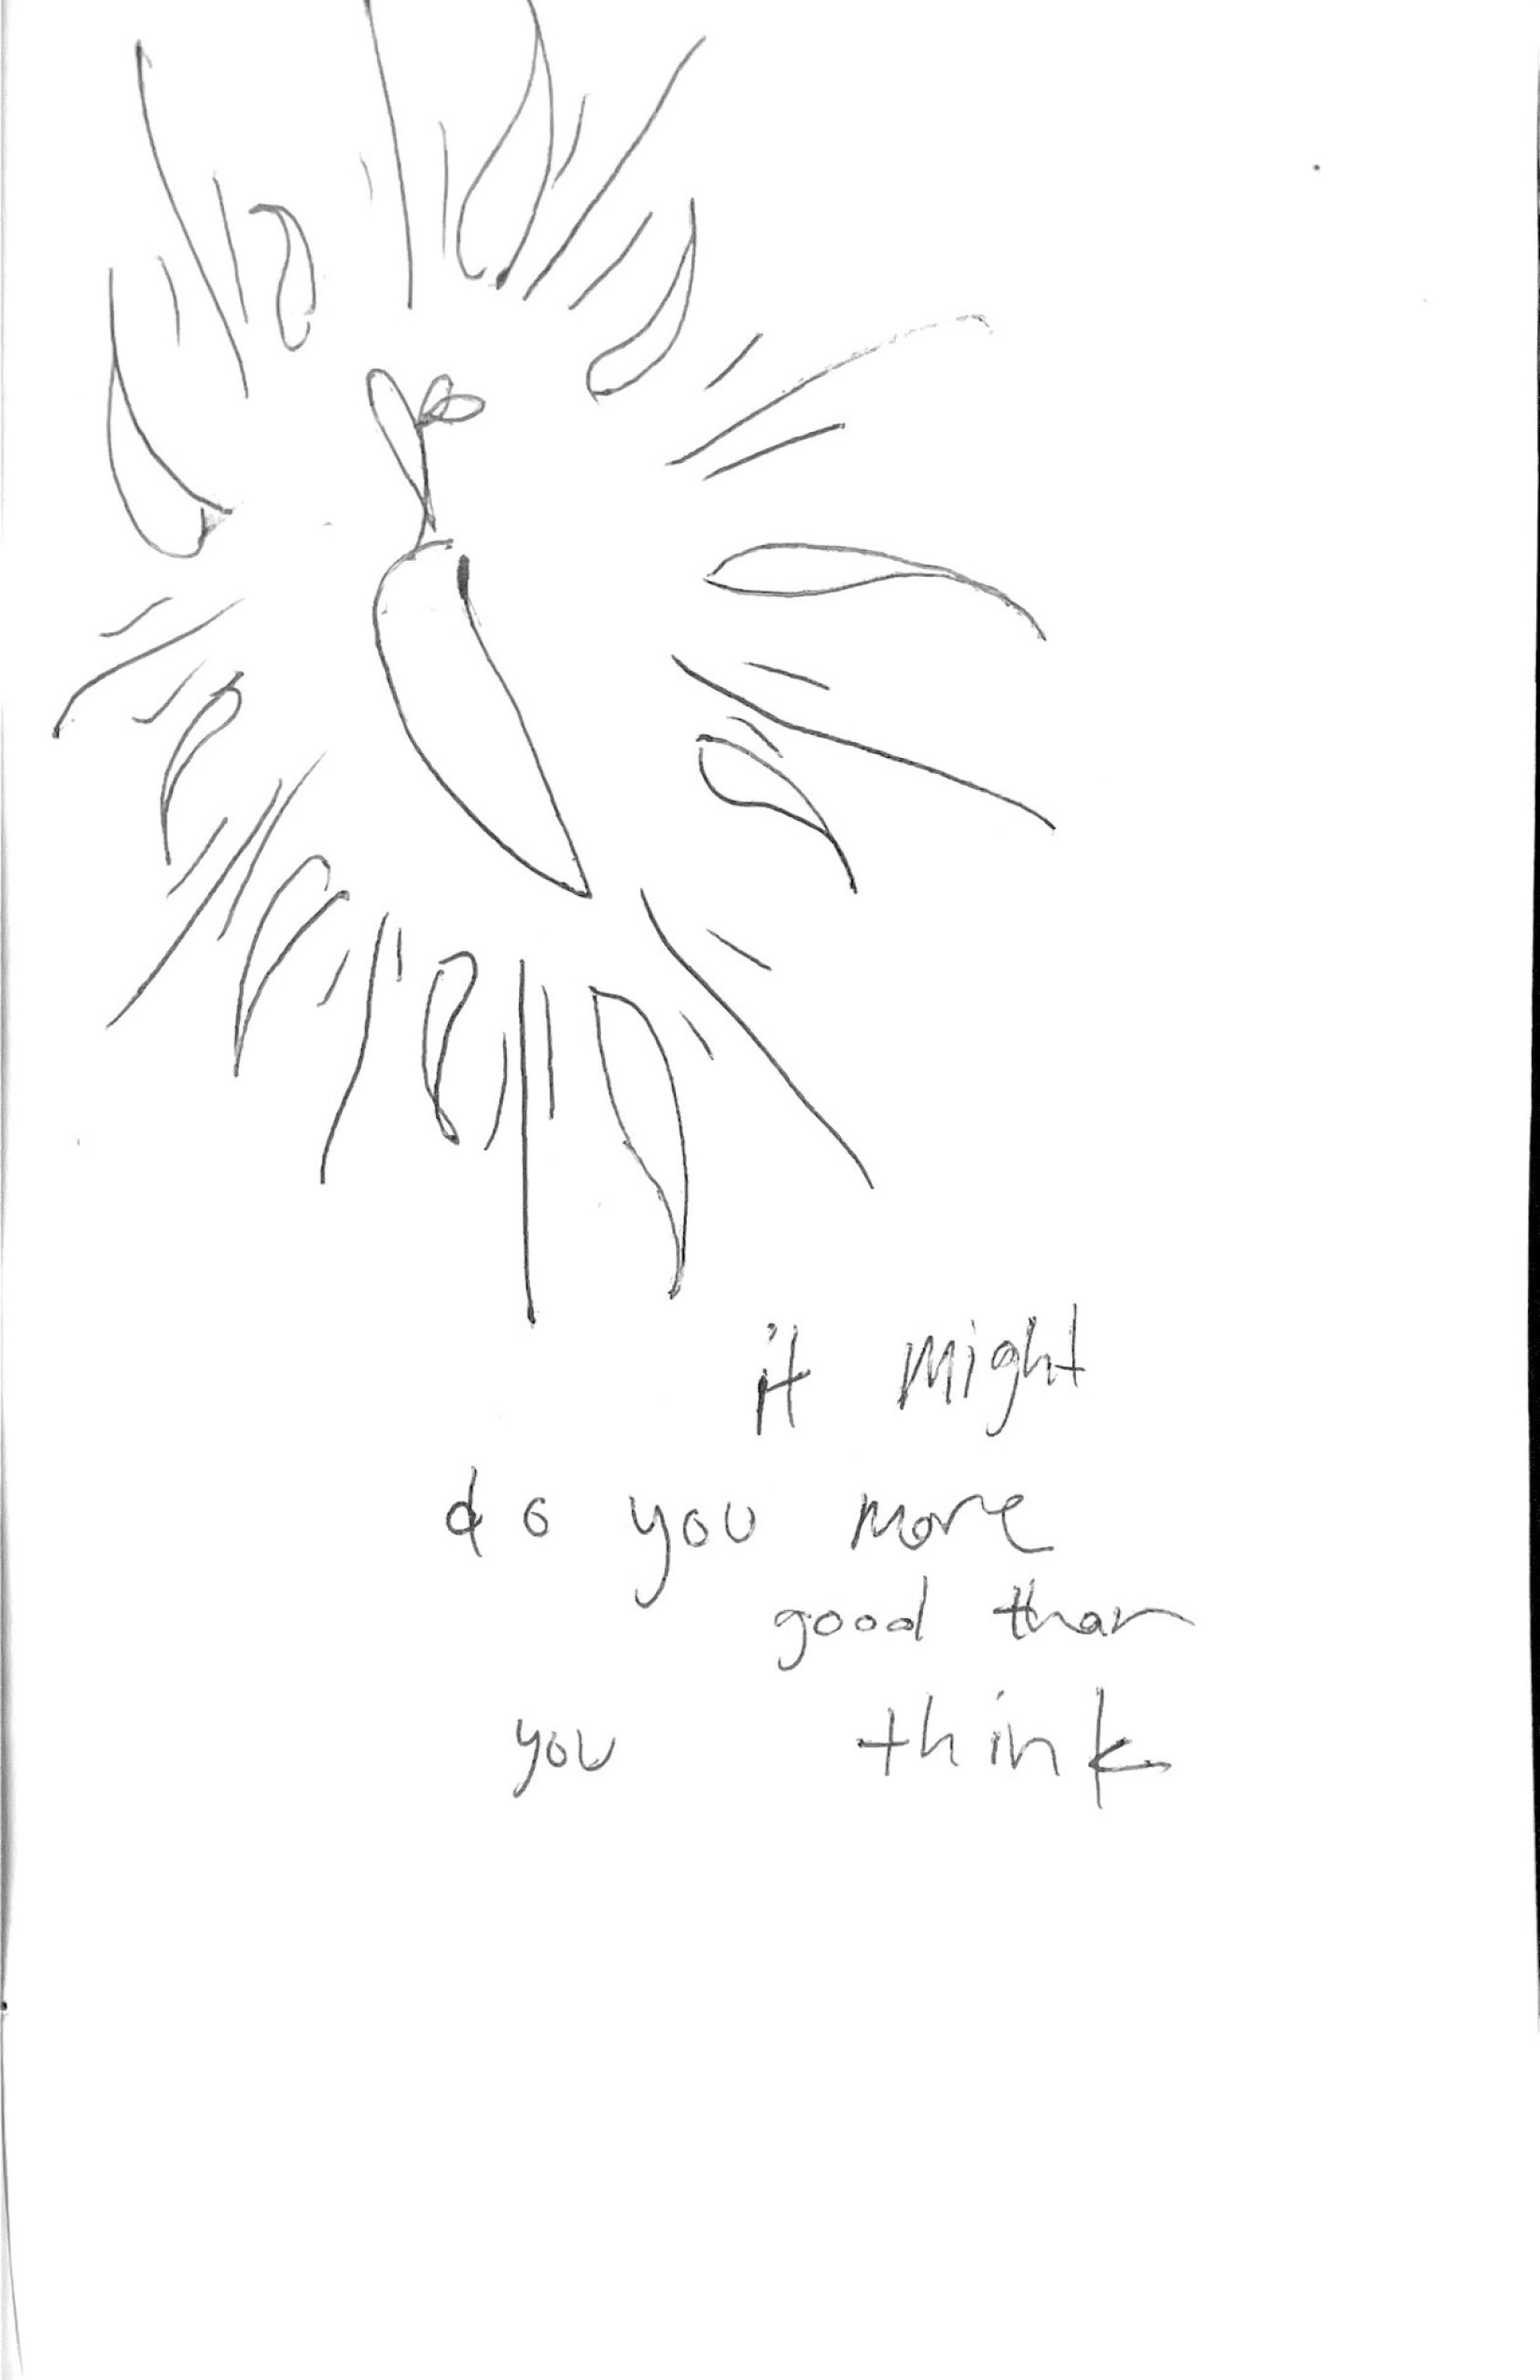 it might
do you more
good than
you think